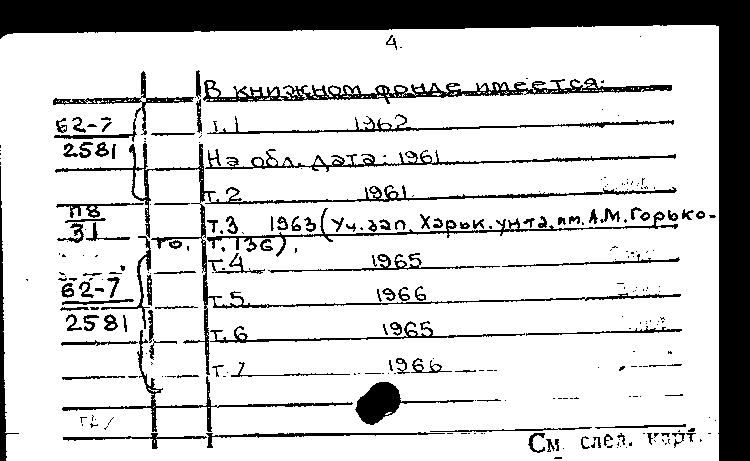 4.
В книжном фонде имеется:
62-7 т.1 1962
2581 На обл. дата: 1961
т.2 1961
П8 т.3 1963 (Уч. зап. Харьк. ун-та. им. А.М. Горько-
31 го. т. 136).
т.4 1965
62-7 т.5 1966
2581 т.6 1965
т.7 1966
См. след. карт.